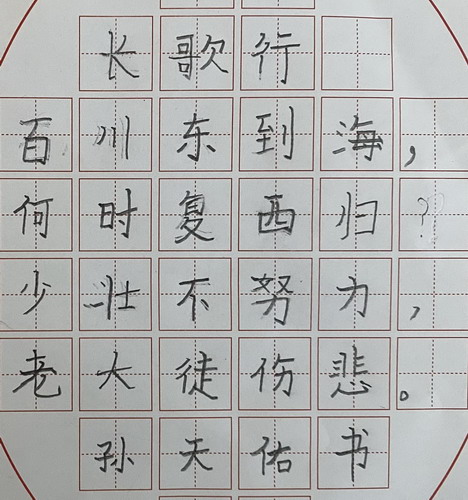 长歌行
百川东到海，
何时复西归？
少壮不努力，
老大徒伤悲。
孙天佑书